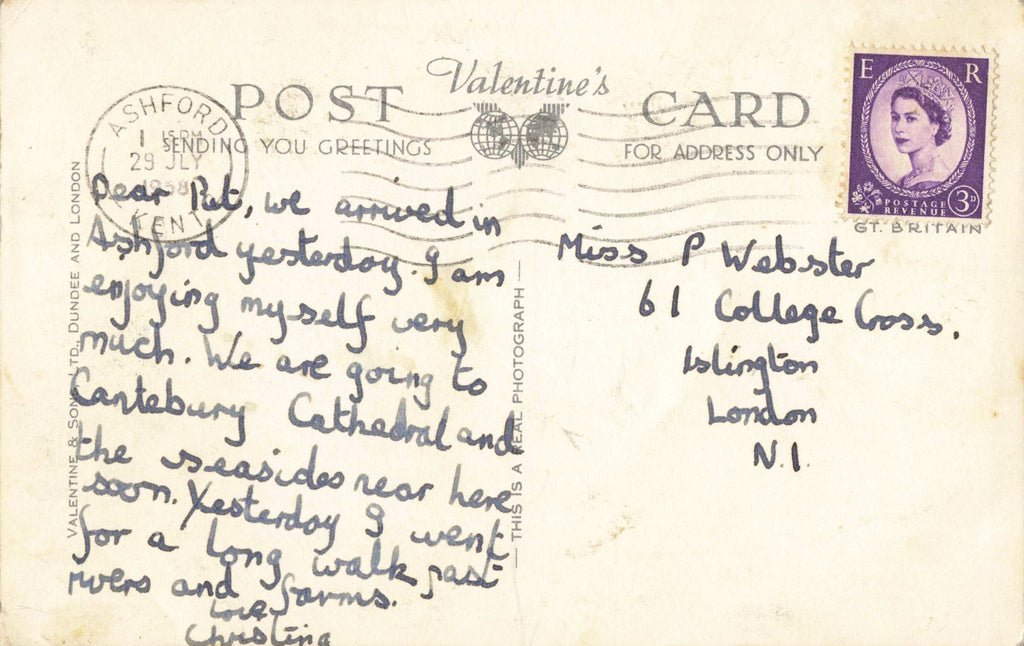 Valentine's
POST CARD
SENDING YOU GREETINGS
FOR ADDRESS ONLY
ASHFORD
29 JLY
1958
KENT
E R
POSTAGE
REVENUE
3D
GT. BRITAIN
VALENTINE & SONS, LTD., DUNDEE AND LONDON
THIS IS A REAL PHOTOGRAPH
Dear Pat, we arrived in
Ashford yesterday. I am
enjoying myself very
much. We are going to
Cantebury Cathedral and
the seasides near here
soon. Yesterday I went
for a long walk past
rivers and farms.
love
Christina
Miss P Webster
61 College Cross.
Islington
London
N.1.